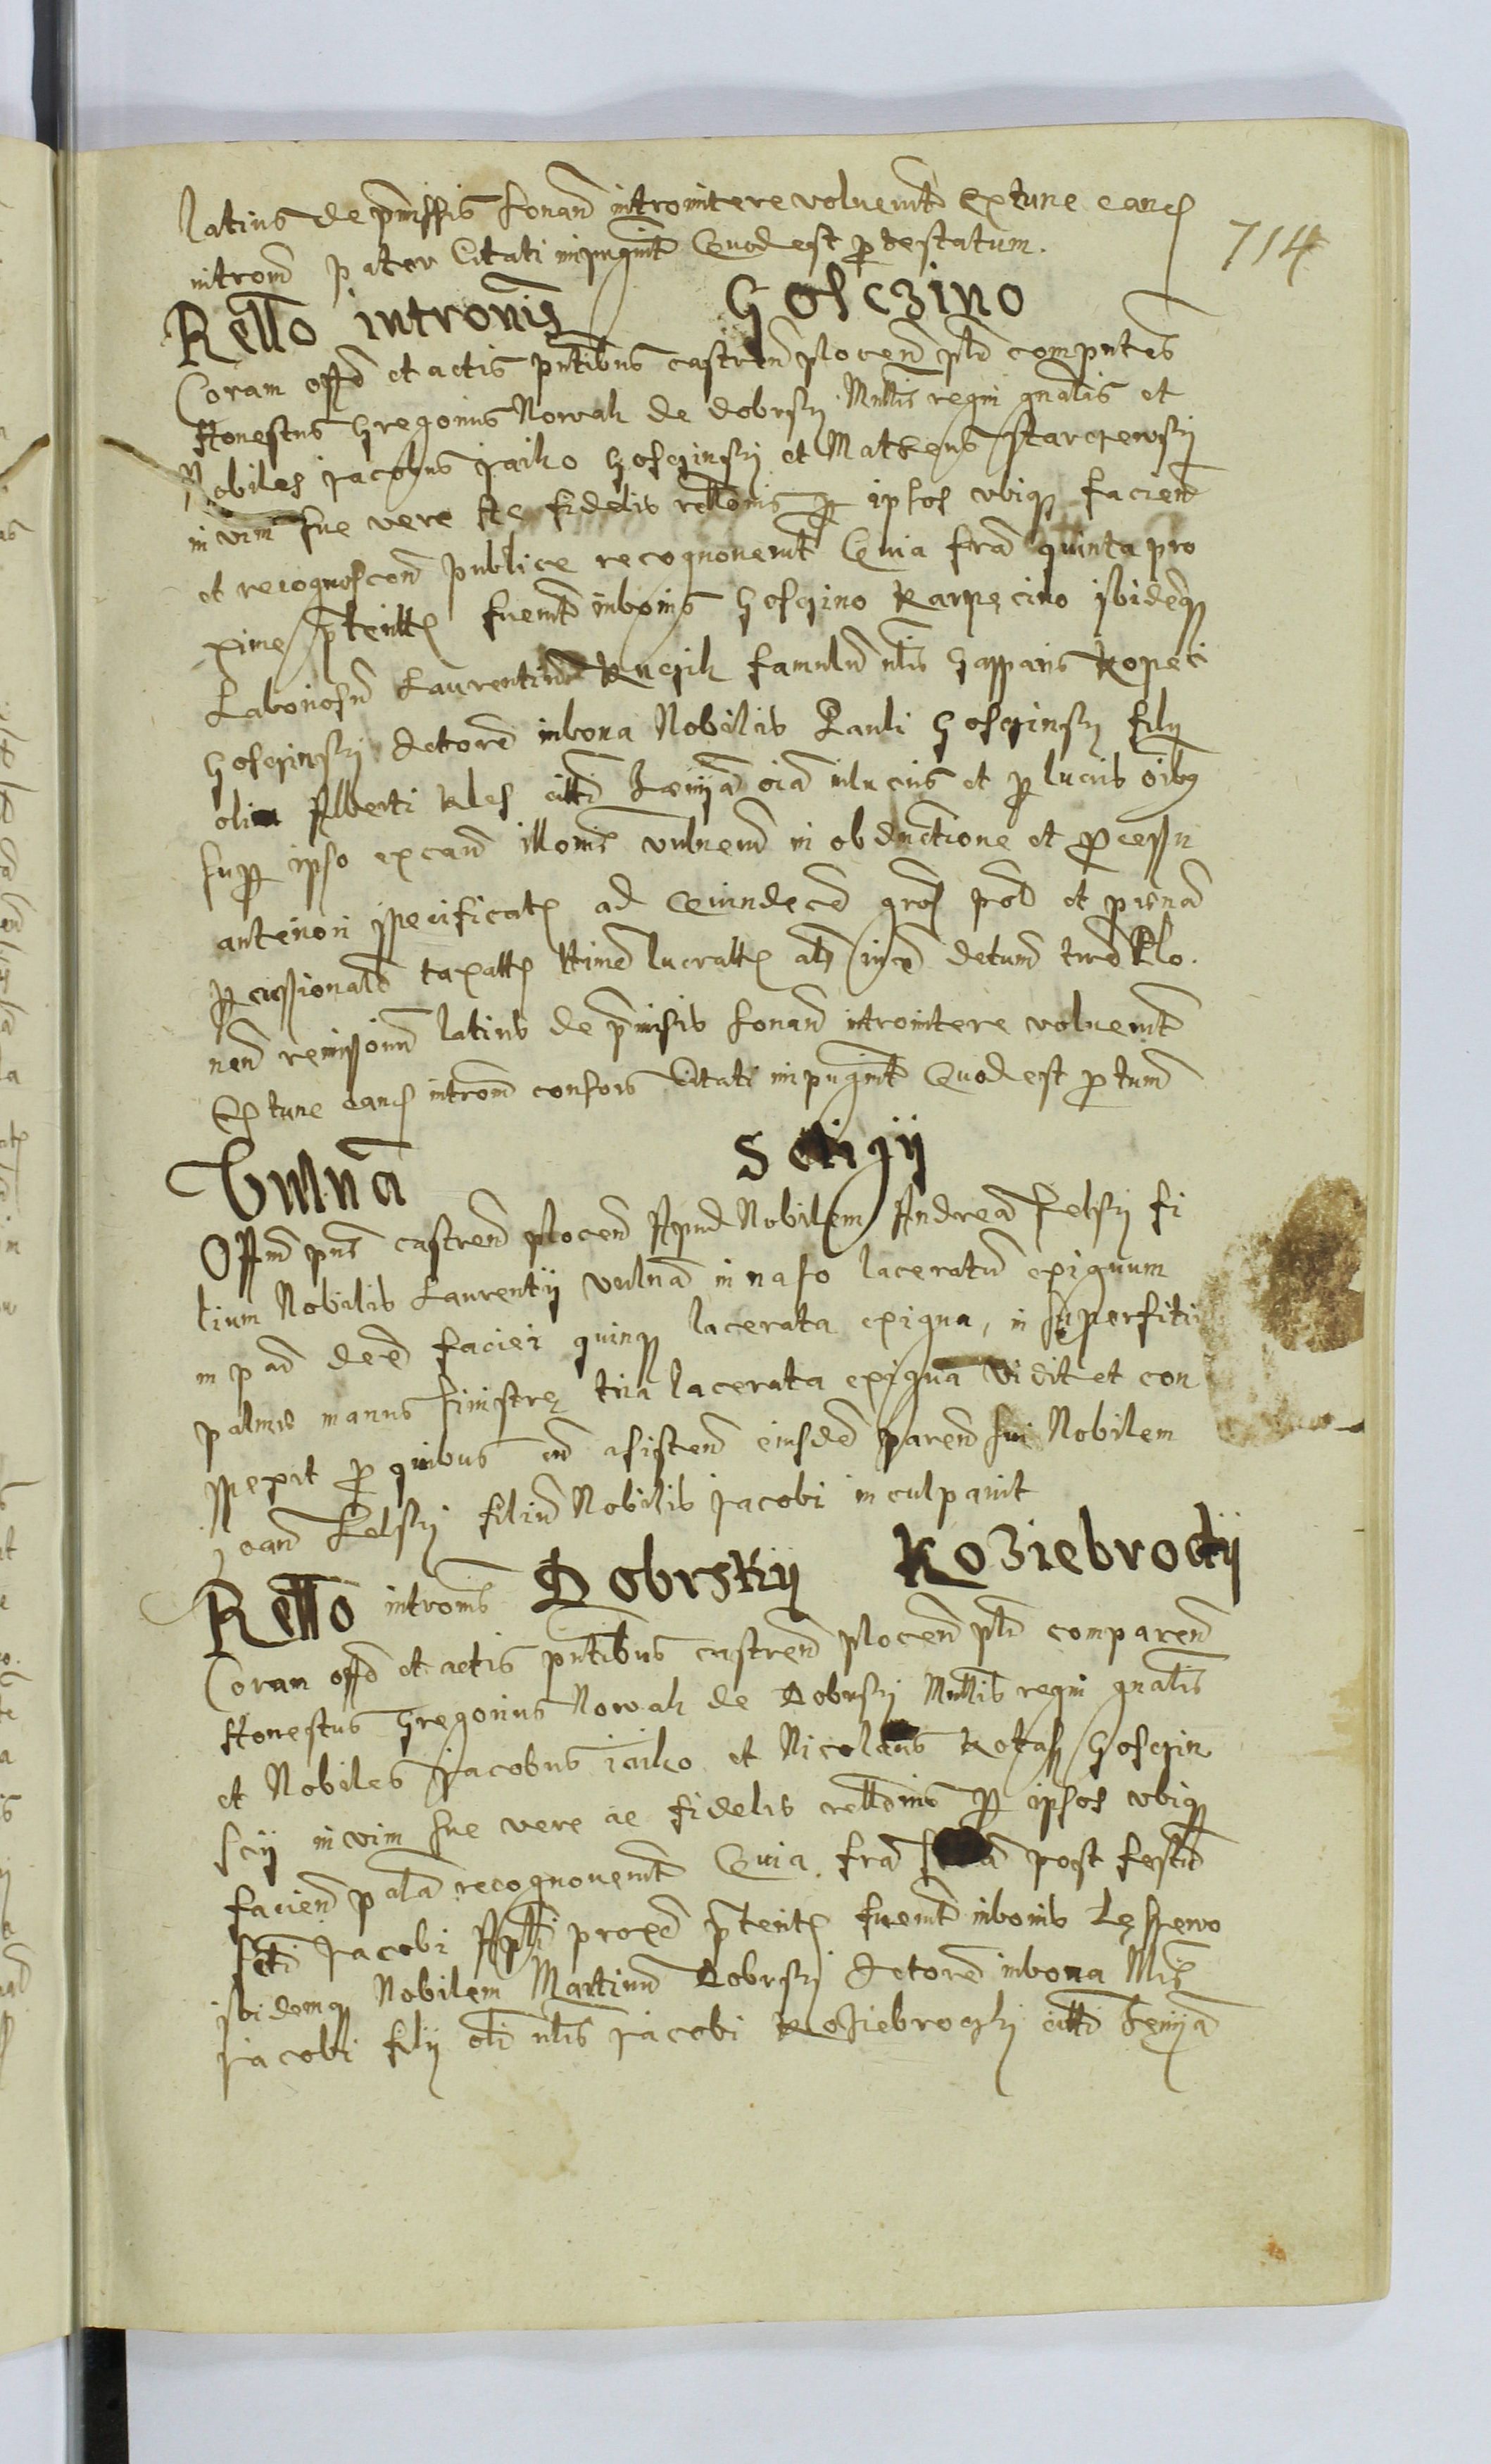 latius de p̃missis sonan̄ intromitere voluerūt Ex tunc eand
714
introm̄ pater Citati impugnūt Quod est ꝓtestatum.
Rello intromis̃ Gosczino
Coram offō et actis pn̄tibus castren̄ plocen̄ psl̄r comp̄ntes
Honestus Gregorius Nowak de dobrsky Mnl̄lis regni gn̄alis et
Nobiles Jacobus Jaiko Gosczinsky et Matheus Starczewsky
in vim sue vere Ac fidelis rell̄onis ꝑ ipsos ubiqꝫ facien̄
et recognoscen̄ publice recognoverūt Quia fr̄a quinta pro
xime p̄terita fuerūt in bonis Gosczino Karnęcino ibideqꝫ
Laboriosū Laurentiū Kuczik famulū nl̄is Gasparis Kopeć
Gosczinsky Actorē in bona Nobilis Pauli Gosczinsky filij
olim Alberti Kles citt̄i om̄ia in lucris et ꝑ lucris oībꝫ
supꝑ ipso ex caūs illoris vulnerū in obductione et ꝓcessu
anteriori specificatꝭ ad Quindecē gros pol̄ et p̄ pena
ꝑ cussional taxattꝭ hinc lucrattꝭ
nen̄ remissionū latius de p̄missis sonan̄ intromitere voluerūt
Ex tunc eand introm̄ consors Citati impugnūt Quod est ꝓtum̄
Vulnera Selsgij
Offiūm pn̄s castren̄ plocen̄ Apud Nobilem Andreā Felsky fi
lium Nobilis Laurentij vulnera in naso laceratū exiguum
in par̄ dex̄ faciei quinqꝫ lacerata exigua, in superfitie
palmis manus sinistrę tria lacerata exigua Vidit et con
spexit ꝑ quibus cū asisten̄ eiusdē paren̄ sui Nobilem
Joan̄ Felsky filiū Nobilis Jacobi inculpavit
Rello intromis̃ Dobrskij Koziebrodij
Coram offō et actis pn̄tibus castren̄ plocen̄ psl̄r comparen̄
Honestus Gregorius Nowak de Dobrsky Mnl̄lis regni gn̄alis
et Nobiles Jacobus iaiko et Nicolaus Gosczin
scij in vim sue vere ac fidelis rell̄onis ꝑ ipsos ubiqꝫ
facien̄ palā recognoverūt Quia fr̄a post festū
scti Jacobi Apl̄i proxe p̄teritꝭ fuerūt in bonis Lęssewo
ibidemqꝫ Nobilem Martinū Dobrsky Actorē in bona
Jacobi filij ol̄i nl̄is Jacobi Koziebrodzky citt̄i